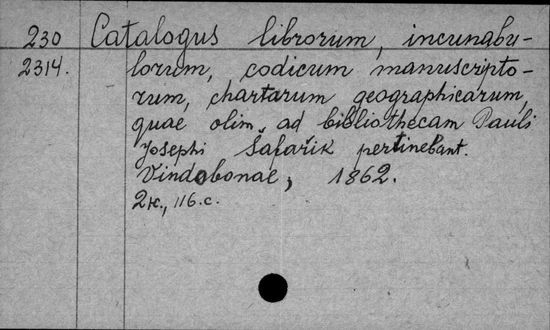 230 Catalogus librorum, incunabu-
2314. lorum, codicum manuscripto-
rum, chartarum geographicarum,
quae olim ad bibliothecam Pauli
Josephi Šafařik pertinebant.
Vindobonae, 1862.
2к., 116.с.